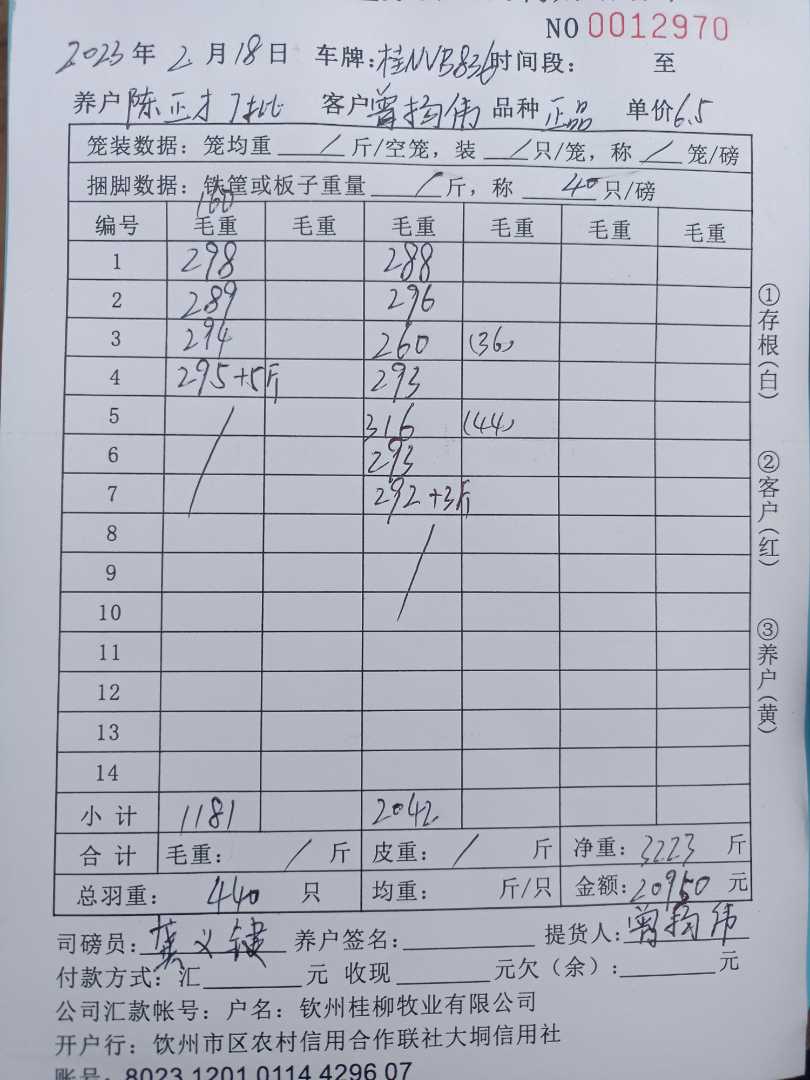 NO 0012970
2023年 2月18日 车牌:桂NVB836 时间段: 至
养户 陈正才 1批 客户 曾扬伟 品种 正品 单价6.5
笼装数据:笼均重 / 斤/空笼,装 / 只/笼,称 / 笼/磅
捆脚数据:铁筐或板子重量 / 斤,称 40 只/磅
160
编号 毛重 毛重 毛重 毛重 毛重 毛重
1 298 288
2 289 296
3 294 260 (36)
4 295+5斤 293
5 / 316 (44)
6 293
7 292+3斤
8 /
9
10
11
12
13
14
小计 1181 2042
合计 毛重: / 斤 皮重: / 斤 净重:3223 斤
总羽重: 440 只 均重: 斤/只 金额:20950 元
司磅员: 养户签名: 提货人:曾扬伟
付款方式:汇 元 收现 元欠(余): 元
公司汇款帐号:户名:钦州桂柳牧业有限公司
开户行:钦州市区农村信用合作联社大垌信用社
账号:8023 1201 0114 4296 07
①存根(白)
②客户(红)
③养户(黄)